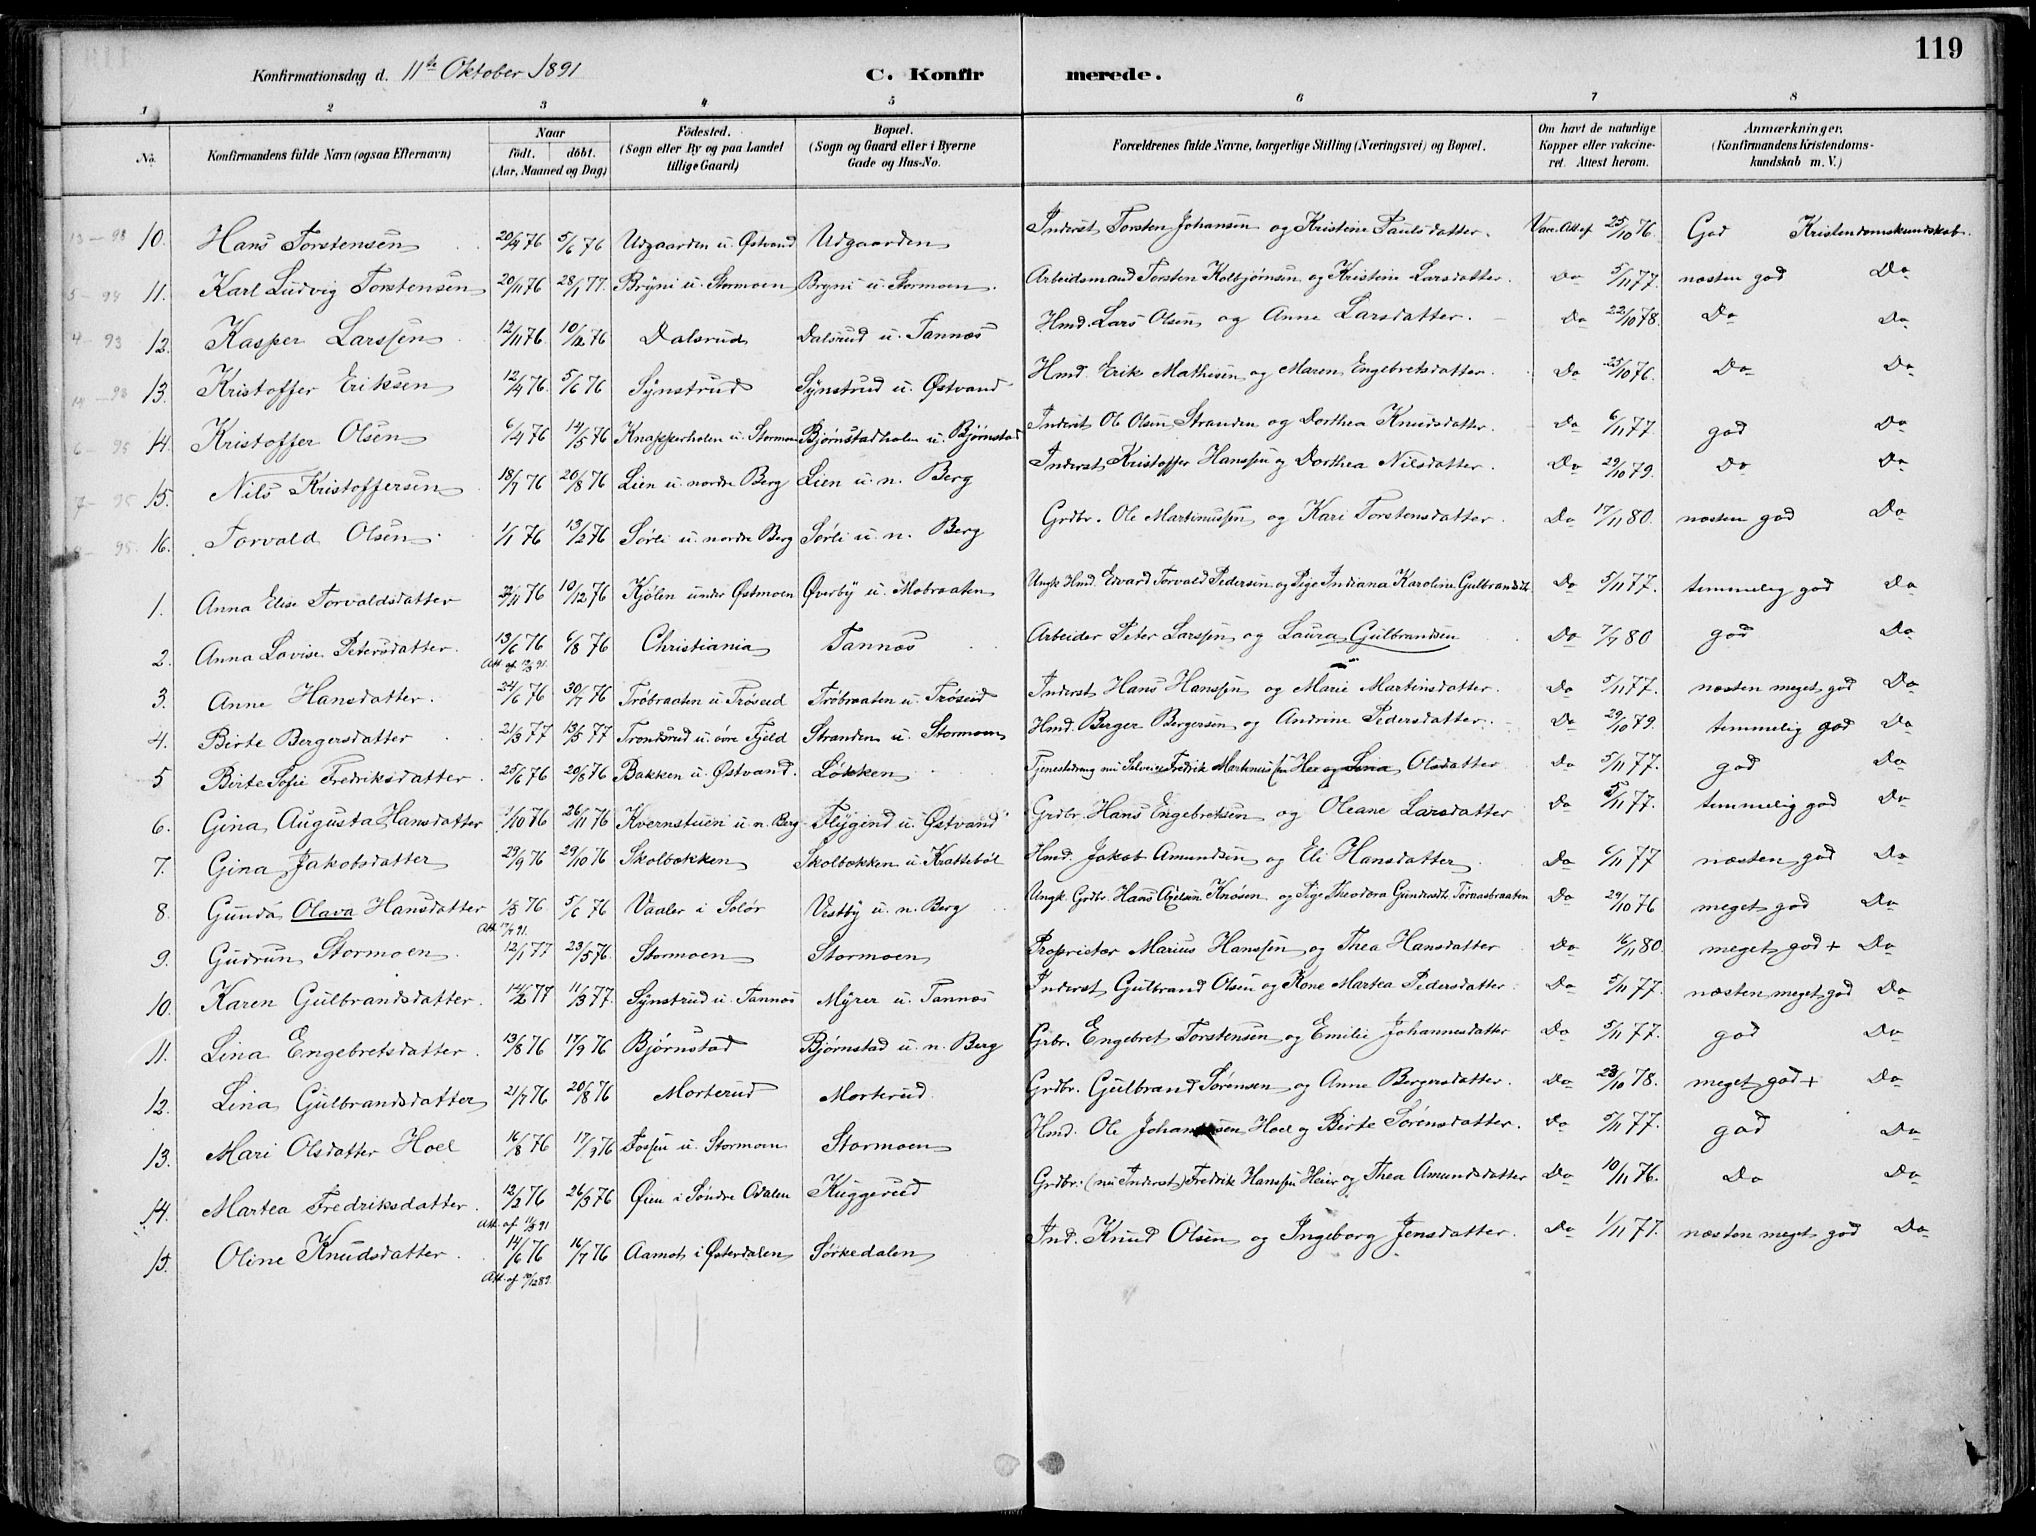 119
Konfirmationsdag d. 11te Oktober 1891 C. Konfir merede.
1 2 3 4 5 6 7 8
No. Konfirmandens fulde Navn (ogsaa Efternavn) Naar født. døbt. (Aar, Maaned og Dag) Fødested. (Sogn eller By og paa Landet tillige Gaard) Bopæl. (Sogn og Gaard eller i Byerne Gade og Hus-No. Forældrenes fulde Navne, borgerlige Stilling (Næringsvei) og Bopæl. Om havt de naturlige Kopper eller vakcineret. Attest herom. Anmærkninger. (Konfirmandens Kristendomskundskab m. V.)
10. Hans Torstensen 20/4 76 5/6 76 Udgaarden u. Østvand Udgaarden Inderst Torsten Johansen og Kristine Paulsdatter. Vacc. Att. af 25/10 76. God Kristendomskundskab.
11. Karl Ludvig Torstensen 20/11 76 28/1 77. Bryni u. Stormoen Bryni u. Stormoen. Arbeidsmand Torsten Kolbjørnsen og Kristine Larsdatter. Do 5/11 77. næsten god Do
12. Kasper Larssen 12/11 76 10/12 76 Dalsrud Dalsrud u. Tannæs Hmd. Lars Olsen og Anne Larsdatter. Do 22/10 78. Do Do
13. Kristoffer Eriksen 12/4 76. 5/6 76 Synstrud Synstrud u. Østvand Hmd. Erik Mathisen og Maren Engebretsdatter. Do 25/10 76. Do Do
14. Kristoffer Olsen 6/4 76 14/5 76 Knapperholen u. Stormoen Bjørnstadholen u. Bjørnstad Inderst Ole Olsen Stranden og Dorthea Knudsdatter. Do 6/11 77 god Do
15. Nils Kristoffersen 18/7 76 20/8 76 Lien u. nordre Berg Lien u. n. Berg Inderst Kristoffer Hanssen og Dorthea Nilsdatter. Do 29/10 79. Do Do
16. Torvald Olsen 1/1 76 13/2 76 Sørli u. nordre Berg Sørli u. n. Berg Grdbr. Ole Martinussen og Kari Torstensdatter. Do 17/11 80. næsten god Do
1. Anna Elise Torvaldsdatter 2/11 76 10/12 76 Kjølen under Østmoen Øverby u. Mobraaten Ungk. Hmd. Edvard Torvald Pedersen og Pige Indiana Karoline Gulbrandsdtr Do 5/11 77. temmelig god Do
2. Anna Lovise Petersdatter. 13/6 76 6/8 76 Christiania Tannæs Arbeider Peter Larssen og Laura Gulbrandsen Do 7/7 80 god Do
3. Anne Hansdatter. 24/6 76 30/7 76 Trøbraaten u. Trøseid Trøbraaten u. Trøseid Inderst Hans Hanssen og Marie Martinsdatter. Do 5/11 77. næsten meget god Do
4. Birte Bergersdatter 21/3 77 13/5 77 Trondsrud u. øvre Fjeld Stranden u. Stormoen Hmd. Berger Bergersen og Andrine Pedersdatter. Do 29/10 79. temmelig god Do
5 Birte Sofie Fredriksdatter. 25/6 76 20/8 76 Bakken u. Østvand. Løkken Tjenestdreng nu Selveier Fredrik Martinussen Hee og Lina Olsdatter Do 5/11 77. god Do
6. Gina Augusta Hansdatter 1/10 76 26/11 76 Kvernstuen u. n. Berg Flygind u. Østvand Grdbr. Hans Engebretsen og Oleane Larsdatter Do 5/11 77. temmelig god Do
7. Gina Jakobsdatter 23/9 76 29/10 76 Skolbækken Skolbækken u. Krattebøl Hmd. Jakob Amundsen og Eli Hansdatter. Do 6/11 77 næsten god Do
8. Gunda Olava Hansdatter 1/3 76 5/6 76 Vaaler i Solør Vestby u. n. Berg Ungk. Grdbr. Hans Axelsen Knøsen og Pige Theodora Gundersdt. Torvasbraaten Do 29/10 76 meget god Do
9. Gudrun Stormoen. 12/1 77 23/5 76. Stormoen Stormoen Proprietær Marius Hanssen og Thea Hansdatter Do 16/11 80. meget god + Do
10. Karen Gulbrandsdatter. 14/2 77 11/3 77. Synstrud u. Tannæs Myrer u. Tannæs Inderst Gulbrand Olsen og Kone Martea Pedersdatter. Do 5/11 77. næsten meget god Do
11. Lina Engebretsdatter. 13/8 76 17/9 76 Bjørnstad Bjørnstad u. n. Berg Grbr. Engebret Torstensen og Emilie Johannesdatter Do 5/11 77. god Do
12. Lina Gulbrandsdatter 21/7 76 20/8 76 Morterud Morterud. Grdbr. Gulbrand Sørensen og Anne Bergersdatter. Do 23/10 78. meget god + Do
13. Mari Olsdatter Hoel 16/8 76 17/9 76 Fossen u. Stormoen Stormoen Hmd. Ole Johannessen Hoel og Birte Sørensdatter. Do 5/11 77. god Do
14. Martea Fredriksdatter. 12/2 76 26/3 76 Øien i Søndre Odalen Kuggerud Grdbr. (nu Inderst) Fredrik Hanssen Heier og Thea Amundsdatter Do 10/11 76. Do Do
15. Oline Knudsdatter. 14/6 76 16/7 76 Aamot i Østerdalen Sørkedalen Ind. Knud Olsen og Ingeborg Jensdatter. Do 1/11 77. næsten meget god Do